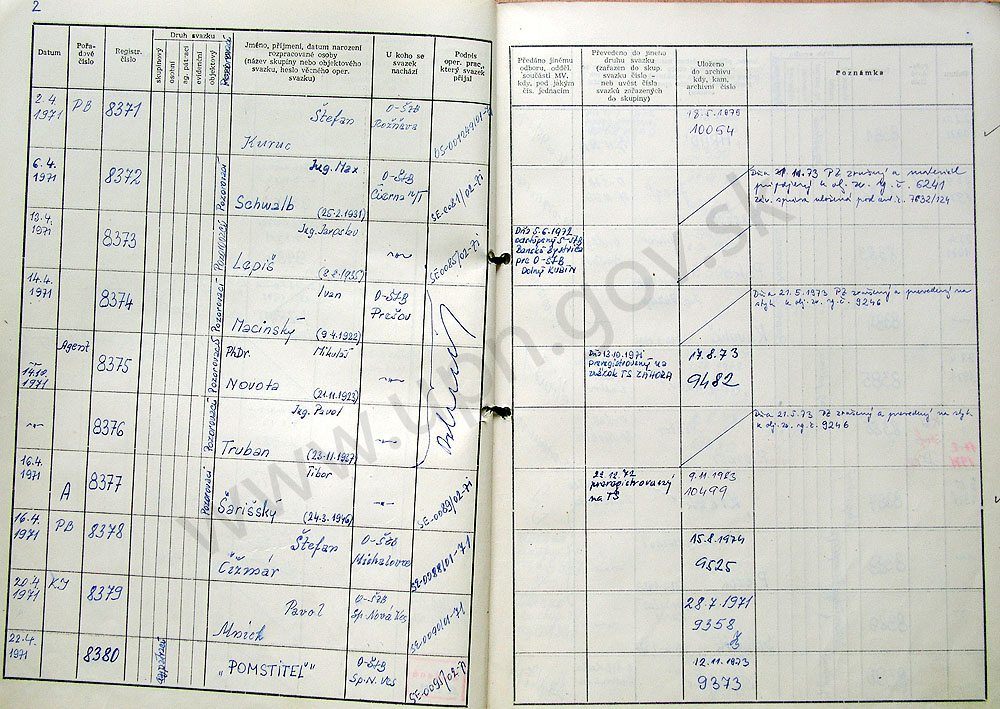 2
Datum
Pořadové číslo
Registr. číslo
Druh svazku
skupinový
osobní
ag. pátrací
evidenční
objektový
Jméno, příjmení, datum narození rozpracované osoby (název skupiny nebo objektového svazku, heslo věcného oper. svazku)
U koho se svazek nachází
Podpis oper. prac., který svazek přijal
Předáno jinému odboru, odděl. součásti MV, kdy, pod jakým čís. jednacím
Převedeno do jiného druhu svazku (zařazen do skup. svazku číslo - neb uvést čísla svazků zařazených do skupiny)
Uloženo do archivu kdy, kam, archivní číslo
Poznámka
2.4. 1971 PB 8371 Štefan Kuruc O-ŠtB Rožňava
18.5.1979 10054
6.4. 1971 8372 Pozorovací Ing. Max Schwalb (25.2.1931) O-ŠtB Čierna n/T SE-0021/02-71
13.4. 1971 8373 Ing. Jaroslav Lepiš (2.2.1935) SE0085/02-71
Dňa 5.6.1972 odstúpený S-ŠtB Banská Bystrica pre O-ŠtB Dolný Kubín
14.4. 1971 8374 Pozorovací Ivan Macinský (9.4.1922) O-ŠtB Prešov
Dňa 21.5.1973 PZ zrušený a prevedený na styk k obj. zv. rg. č. 9246
Agent 14.10. 1971 8375 Pozorovací PhDr. Mikuláš Novota (21.11.1923)
Dňa 13.10.1971 preregistrovaný na zväzok TS
17.8.73 9482
8376 Pozorovací Ing. Pavol Truban (23.11.1927)
Dňa 21.5.73 PZ zrušený a prevedený na styk k obj. zv. rg. č. 9246
16.4. 1971 A 8377 Pozorovací Tibor Šarišský (24.3.1946) SE-0089/02-71
22.12.72 preregistrovaný na TS
9.11.1983 10499
16.4. 1971 PB 8378 Štefan Čižmár O-ŠtB Michalovce SE-0088/01-71
15.8.1974 9525
20.4. 1971 KJ 8379 Pavol Mních O-ŠtB Sp. Nová Ves SE-0090/01-71
28.7.1971 9358
22.4. 1971 8380 "POMSTITEĽ" O-ŠtB Sp. N. Ves SE-0091/02-71
12.11.1973 9373
www.upn.gov.sk